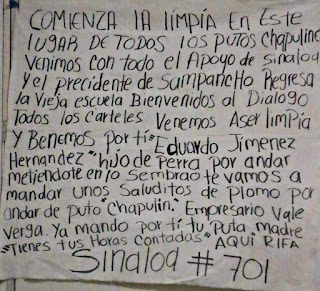 COMIENZA lA lImpíA En Este
lUGAR DE TODOS lOS PUTOS Chapuline
Venimos con todo el Apoyo de Sinaloa
y el precidente de SAmpAncho Regresa
la Vieja escuela Bienvenidos al DIAlogo
Todos los Carteles Venemos Aser limpía
y Benemos por tí "Eduardo Jimenez
Hernandez" hijo de Perra por andar
metiendote en lo Sembrao te vamos a
mandar unos Saluditos de Plomo por
andar de puto "Chapulin." Empresario Vale
verga. Ya mando por tí tu puta madre
"Tienes tus Horas Contadas" AQUI RIFA
Sinaloa # 701